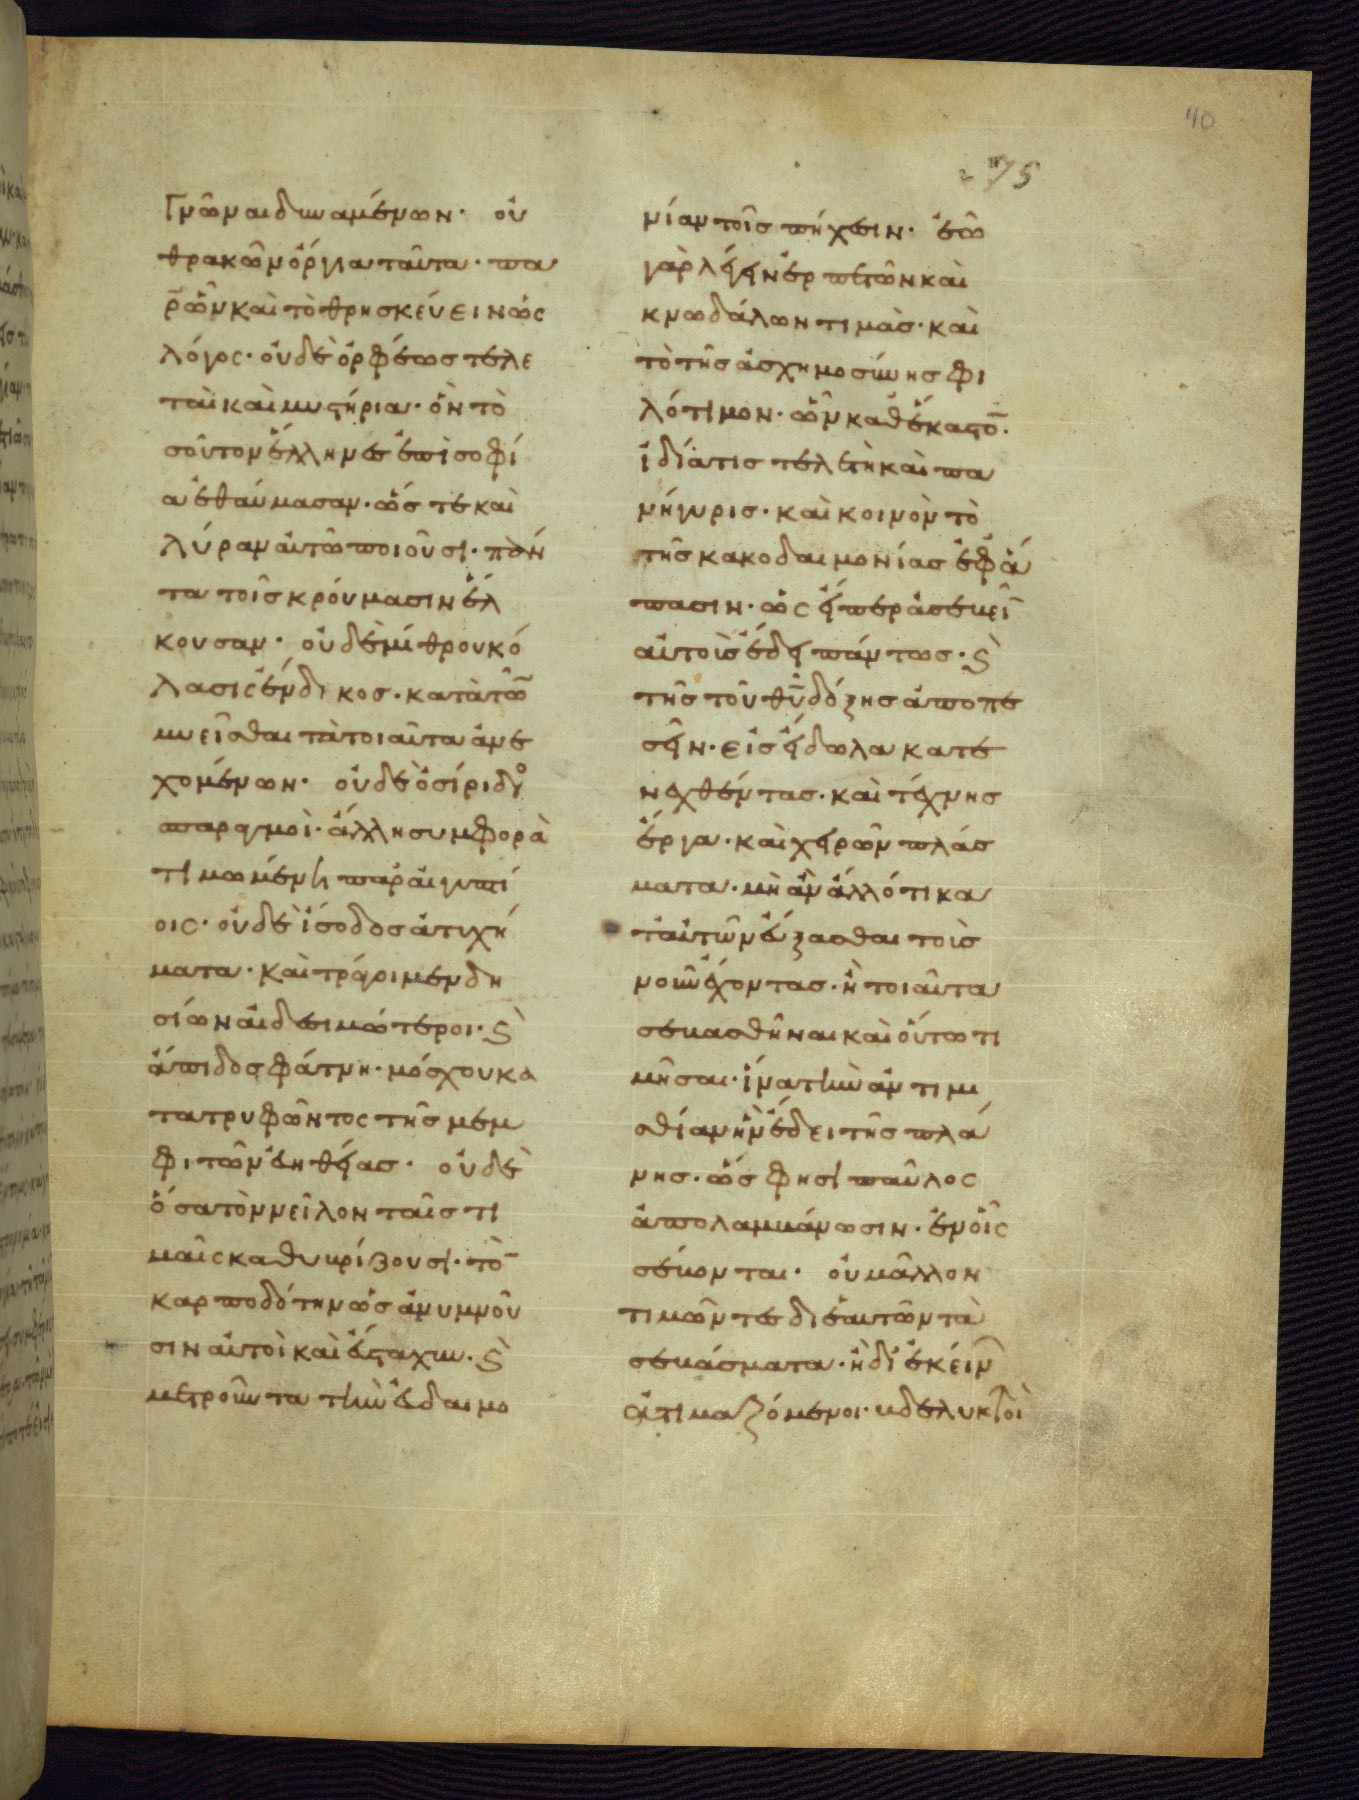 40
275
γνῶναι δυναμένων· οὐ
θρακῶν ὄργια ταῦτα· πα
ρ' ὧν καὶ τὸ θρησκεύειν ὡς
λόγος· οὐδὲ ὀρφέως τελε
ταὶ καὶ μυστήρια· ὃν το
σοῦτον ἕλληνες ἐπὶ σοφί
α ἐθαύμασαν· ὥστε καὶ
λύραν αὐτῶ ποιοῦσι· πάν
τα τοῖς κρούμασιν ἕλ
κουσαν· οὐδὲ μίθρου κό
λασις ἔνδικος· κατὰ τῶν
μυεῖσθαι τὰ τοιαῦτα ἀνε
χομένων· οὐδὲ ὀσίριδος
σπαραγμοὶ· ἄλλη συμφορὰ
τιμωμένη παρ' αἰγυπτί
οις· οὐδὲ ἴσιδος ἀτυχή
ματα· καὶ τράγοι μενδη
σίων αἰδεσιμώτεροι· καὶ
ἄπιδος φάτνη· μόσχου κα
τατρυφῶντος τῆς μεμ
φιτῶν εὐηθείας· οὐδὲ
ὅσα τὸν νεῖλον ταῖς τι
μαῖς καθυβρίζουσι· τὸν
καρποδότην ὡς ἀνυμνοῦ
σιν αὐτοὶ καὶ εὔσταχυν· καὶ
μετροῦντα τὴν εὐδαιμο
νίαν τοῖς πήχεσιν· ἐῶ
γὰρ λέγειν ἑρπετῶν καὶ
κνωδάλων τιμὰς· καὶ
τὸ τῆς ἀσχημοσύνης φι
λότιμον· ὧν καθ' ἕκαστον·
ἰδία τις τελετὴ καὶ πα
νήγυρις· καὶ κοινὸν τὸ
τῆς κακοδαιμονίας ἐφ' ἅ
πασιν· ὡς εἴπερ ἀσεβεῖν
αὐτοῖς ἔδει πάντως· καὶ
τῆς τοῦ θυ δόξης ἀποπε
σεῖν· εἰς εἴδωλα κατε
νεχθέντας· καὶ τέχνης
ἔργα· καὶ χειρῶν πλάσ
ματα· μὴ ἂν ἄλλό τι κα
τ' αὐτῶν εὔξασθαι τοὺς
νοῦν ἔχοντας· ἢ τοιαῦτα
σεβασθῆναι καὶ οὕτω τι
μῆσαι· ἵνα τὴν ἀντιμι
σθίαν ἣν ἔδει τῆς πλά
νης· ὥς φησι παῦλος
ἀπολαμβάνωσιν· ἐν οἷς
σέβονται· οὐ μᾶλλον
τιμῶντες δι' ἑαυτῶν τὰ
σεβάσματα· ἢ δι' ἐκείνων
ἀτιμαζόμενοι· βδελυκτοὶ